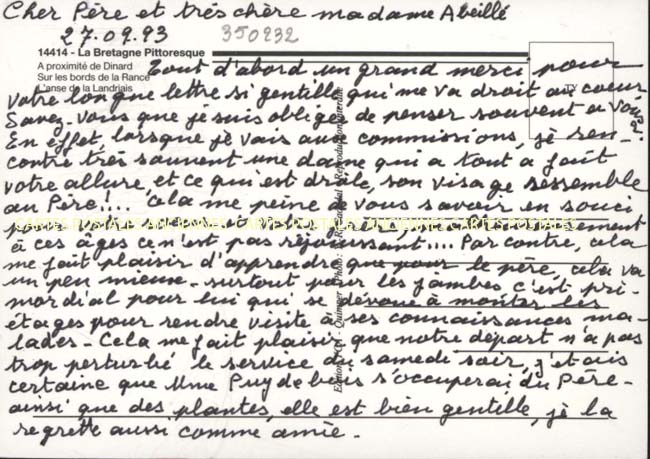 Cher Père et très chère madame Abeillé
27.09.93 350232
14414 - La Bretagne Pittoresque
A proximité de Dinard
Sur les bords de la Rance
L'anse de la Landriais
Tout d'abord un grand merci pour
votre longue lettre si gentille qui me va droit au coeur
Savez-vous que je suis obligée de penser souvent à vous?
En effet, lorsque je vais aux commissions, je ren-
contre très souvent une dame qui a tout à fait
votre allure, et ce qui est drôle, son visage ressemble
au Père!... Cela me peine de vous savoir en souci
pour vos
CARTES POSTALES ANCIENNES CARTES POSTALES ANCIENNES CARTES POSTALES
à ces âges ce n'est pas réjouissant.... Par contre, cela
me fait plaisir d'apprendre que pour le père, cela va
un peu mieux - surtout pour les jambes c'est pri-
mordial pour lui qui se dévoue à monter les
étages pour rendre visite à ses connaissances ma-
lades - Cela me fait plaisir que notre départ n'a pas
trop perturbé le service du samedi soir, j'étais
certaine que Mme Puydebois s'occuperai du Père -
ainsi que des plantes, elle est bien gentille, je la
regrette aussi comme amie -